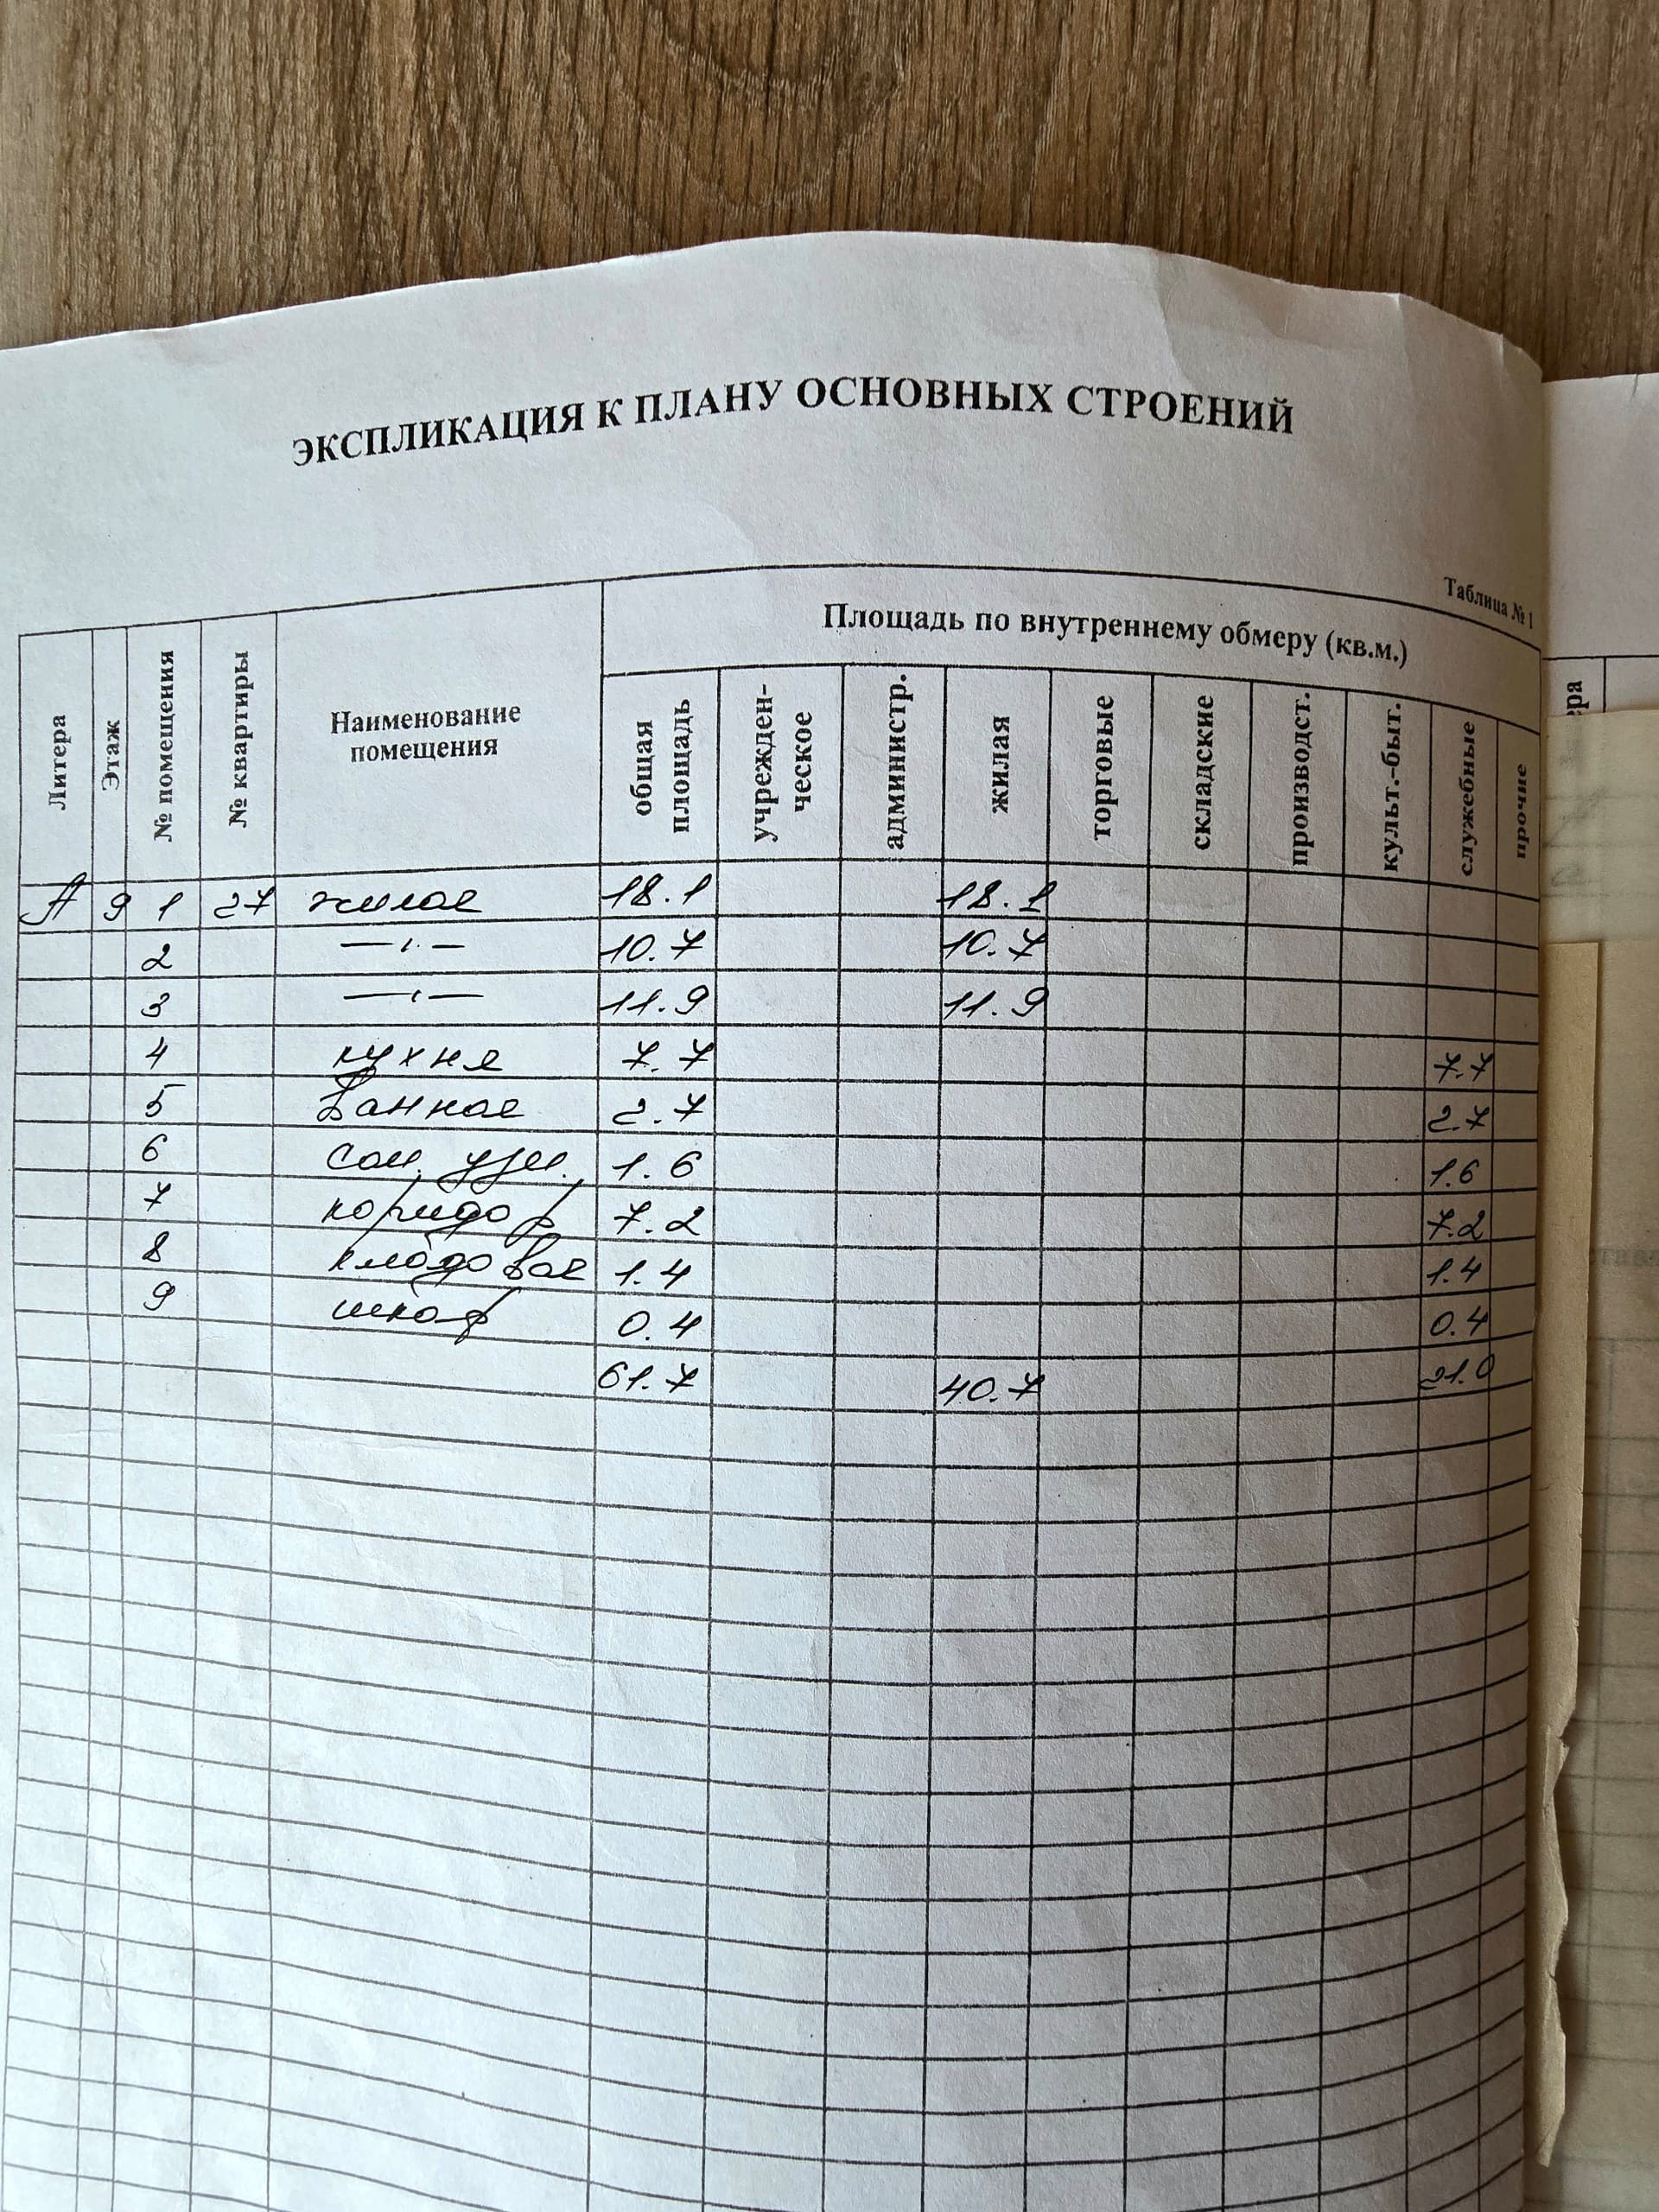 ЭКСПЛИКАЦИЯ К ПЛАНУ ОСНОВНЫХ СТРОЕНИЙ
Таблица № 1
Литера Этаж № помещения № квартиры Наименование помещения Площадь по внутреннему обмеру (кв.м.)
общая площадь учрежден-ческое администр. жилая торговые складские производст. культ.-быт. служебные прочие
А 9 1 27 жилая 18.1 18.1
2 —"— 10.7 10.7
3 —"— 11.9 11.9
4 кухня 7.7 7.7
5 ванная 2.7 2.7
6 сан. узл. 1.6 1.6
7 коридор 7.2 7.2
8 кладовая 1.4 1.4
9 шкаф 0.4 0.4
61.7 40.7 21.0